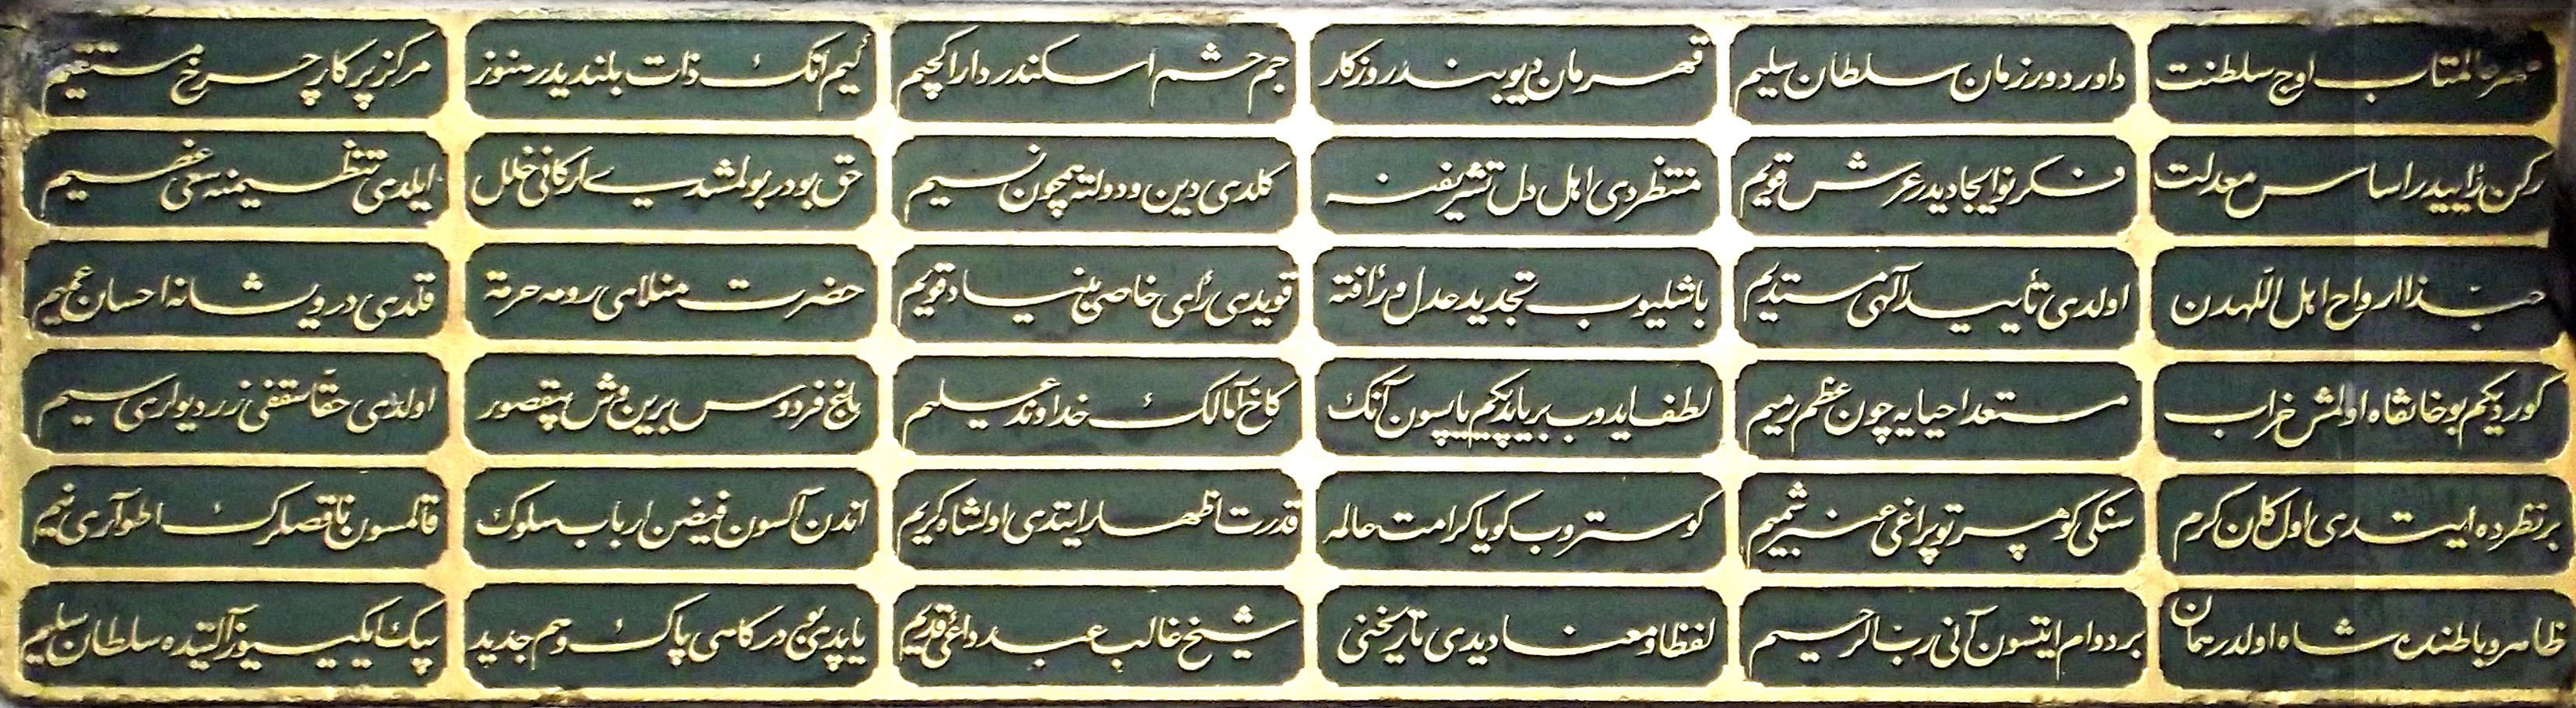 مهر عالمتاب اوج سلطنت داور دور زمان سلطان سليم قهرمان ديو بند روزكار جم حشم اسكندر دارا كجيم كيم انك ذات بلنديدر هنوز مركز پركار چرخ مستقيم
ركن رأييدر اساس معدلت فكر نو ايجاديدر عرش قويم منتظردى اهل دل تشريفنه كلدى دين و دولته همچون نسيم حق بودر بولمشدى اركانى خلل ايلدى تنظيمنه سعى عظيم
حبذا ارواح اهل اللهدن اولدى تأييد آلهى مستديم باشليوب تجديد عدل و رأفته قويدى رأى خاصى بنياد قويم حضرت منلاى رومه حرمة قلدى درويشانه احسان عميم
كورديكم بو خانقاه اولمش خراب مستعد احيايه چون عظم رميم لطف ايدوب بر ياپديكم ياپسون آنك كاخ آمالك خداوند عليم باغ فردوس برين وش بيقصور اولدى حقا سقفى زر ديوارى سيم
بر نظرده ايتدى اول كان كرم سنكى كوهر توپراغى عنبر شميم كوستروب كويا كرامت حالمه قدرت اظهار ايتدى اولشاه كريم اندن آلسون فيض ارباب سلوك قالمسون ناقصلرك اطوارى نيم
ظاهر و باطنده شاه اولدر همان بر دوام ايتسون آنى رب الرحيم لفظا و معنا ديدى تاريخنى شيخ غالب عبد داعئ قديم ياپدى بو دركاهى پاك و هم جديد بيك ايكيوز آلتيده سلطان سليم